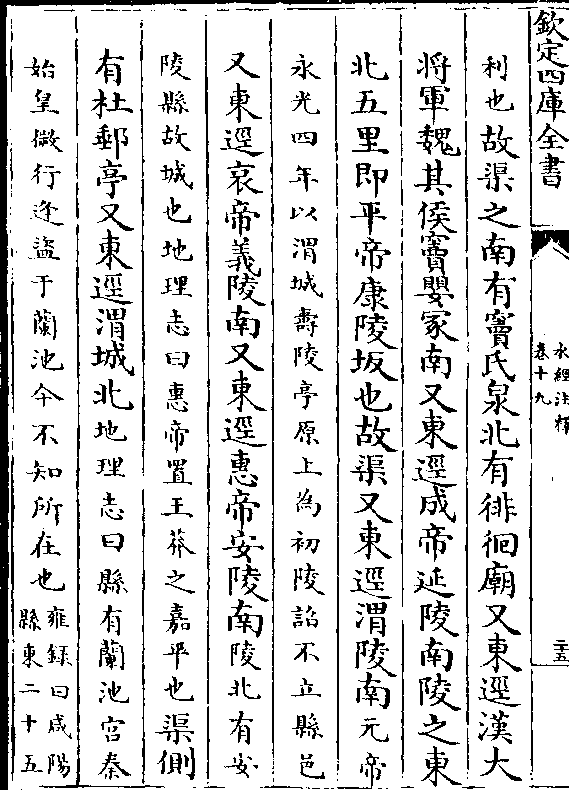 欽定四庫全書
水經注釋
卷十九
二十五
利也故渠之南有竇氏泉北有徘徊廟又東逕漢大
將軍魏其侯竇嬰冢南又東逕成帝延陵南陵之東
北五里即平帝康陵坂也故渠又東逕渭陵南元帝
永光四年以渭城壽陵亭原上為初陵詔不立縣邑
又東逕哀帝義陵南又東逕惠帝安陵南陵北有安
陵縣故城也地理志曰惠帝置王莽之嘉平也渠側
有杜郵亭又東逕渭城北地理志曰縣有蘭池宮秦
始皇微行逢盜于蘭池今不知所在也雍錄曰咸陽
縣東二十五